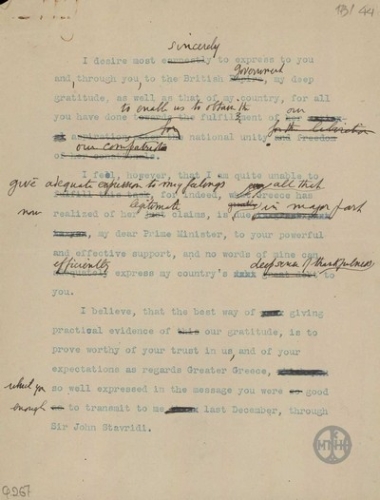 131/44
sincerely
I desire most earnestly to express to you
and, through you, to the British government, my deep
gratitude, as well as that of my country, for all
to enable us to obtain the
you have done towards the fulfilment of our
aspirations for the national unity and freedom for the liberation
our compatriots
of
I feel, however, that I am quite unable to
give adequate expression to my feelings
for indeed, all that Greece has
now
realized of her legitimate just claims, is due in major part
my dear Prime Minister, to your powerful
and effective support, and no words of mine can
efficiently deep sense of thankfulness
adequately express my country's great debt to
you.
I believe, that the best way of giving
practical evidence of this our gratitude, is to
prove worthy of your trust in us, and of your
expectations as regards Greater Greece,
which you
so well expressed in the message you were so good
enough
as to transmit to me last December, through
Sir John Stavridi.